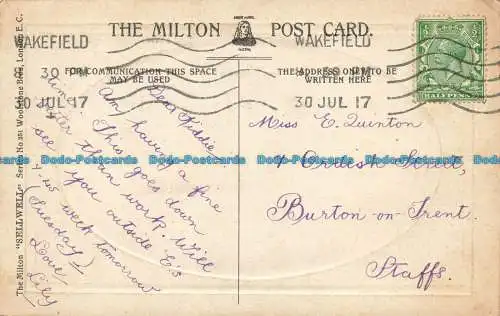 THE MILTON POST CARD.
WAKEFIELD
30 PM
30 JUL 17
WAKEFIELD
PM
30 JUL 17
FOR COMMUNICATION THIS SPACE
MAY BE USED
THE ADDRESS ONLY TO BE
WRITTEN HERE
HALFPENNY
The Milton "SELLWELL" Series No. Woolstone Bdgs, London E.C.
Dear
Am having a fine
time. This goes down
better than work. Will
see you outside E's
to week tomorrow
(Tuesday)
Love
Lily
Miss E. Quinton
Ordish Street,
Burton-on-Trent.
Staffs.
Dodo-Postcards Dodo-Postcards Dodo-Postcards Dodo-Postcards Dodo-Postcards